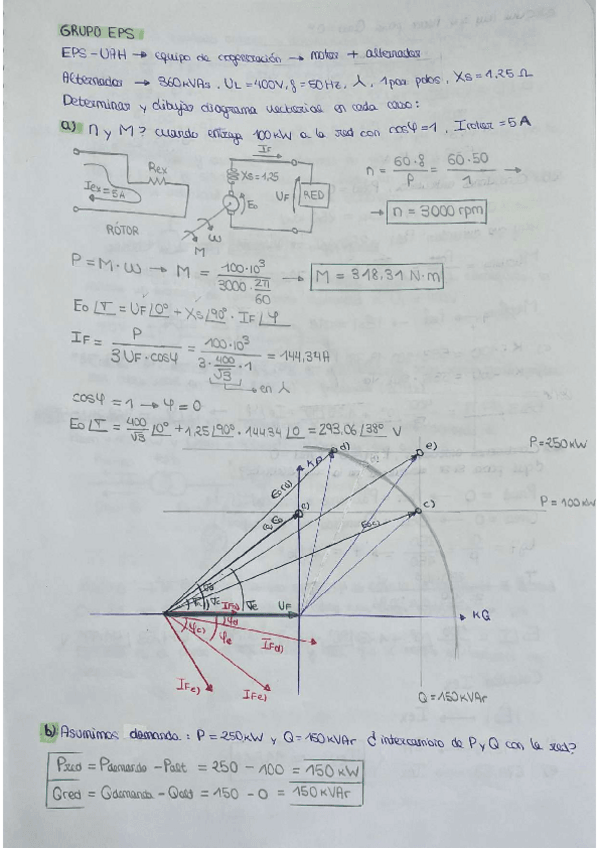 GRUPO EPS
EPS-UAH → equipo de cogeneración → motor + alternador
Alternador → 360KVAs, UL = 400V, f = 50Hz, ⅄, 1 par polos, Xs = 1,25 Ω
Determinar y dibujar diagrama vectorial en cada caso:
a) n y M? cuando entrega 100 KW a la red con cosφ = 1, Irotor = 5A
Rex
Iex = 5A
RÓTOR
IF
Xs = 1,25
Eo
UF
RED
M
ω
n = 60·f / P = 60·50 / 1 →
→ n = 3000 rpm
P = M·ω → M = 100·10³ / 3000·2π/60 → M = 318,31 N·m
Eo∠δ = UF∠0° + Xs∠90° · IF∠φ
IF = P / 3 UF·cosφ = 100·10³ / 3·400/√3·1 = 144,34A
en ⅄
cosφ = 1 → φ = 0
Eo∠δ = 400/√3 ∠0° + 1,25∠90° · 144,34∠0 = 293,06∠38° V
KP
d)
e)
P = 250KW
Eo(d)
c)
P = 100KW
Eo(c)
UF
KQ
IFd)
IFc)
IFe)
φc)
φe
Q = 150KVAr
b) Asumimos demanda: P = 250KW y Q = 150KVAr ¿intercambio de P y Q con la red?
Pred = Pdemanda - Palt = 250 - 100 = 150 KW
Qred = Qdemanda - Qalt = 150 - 0 = 150 KVAr